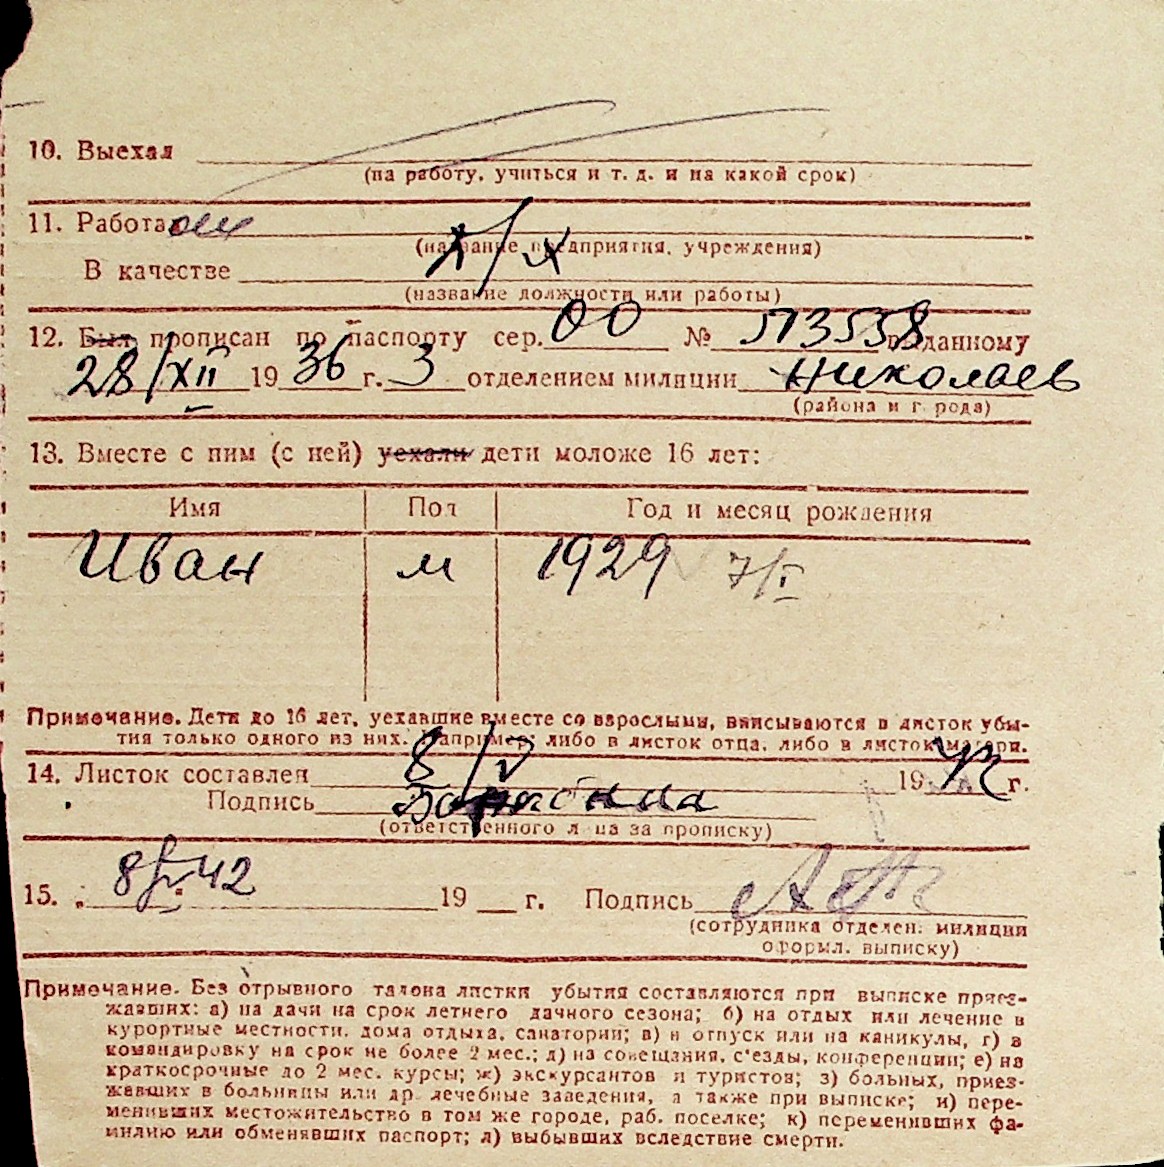 10. Выехал
(на работу, учиться и т. д. и на какой срок)
11. Работа
(название предприятия, учреждения)
В качестве х/х
(название должности или работы)
12. Был прописан по паспорту сер. ОО № 513538 выданному
28/XII 1936 г. 3 отделением милиции Николаев
(района и города)
13. Вместе с ним (с ней) уехали дети моложе 16 лет:
Имя Пол Год и месяц рождения
Иван м 1929 7/I
Примечание. Дети до 16 лет, уехавшие вместе со взрослыми, вписываются в листок убы-
тия только одного из них. Например: либо в листок отца, либо в листок матери.
14. Листок составлен 8/V 1942 г.
Подпись
(ответственного лица за прописку)
15. „ 8/V 42 19 г. Подпись
(сотрудника отделен. милиции
оформл. выписку)
Примечание. Без отрывного талона листки убытия составляются при выписке приез-
жавших: а) на дачи на срок летнего дачного сезона; б) на отдых или лечение в
курортные местности, дома отдыха, санатории; в) в отпуск или на каникулы, г) в
командировку на срок не более 2 мес.; д) на совещания, с'езды, конференции; е) на
краткосрочные до 2 мес. курсы; ж) экскурсантов и туристов; з) больных, приез-
жавших в больницы или др. лечебные заведения, а также при выписке; и) пере-
менивших местожительство в том же городе, раб. поселке; к) переменивших фа-
милию или обменявших паспорт; л) выбывших вследствие смерти.